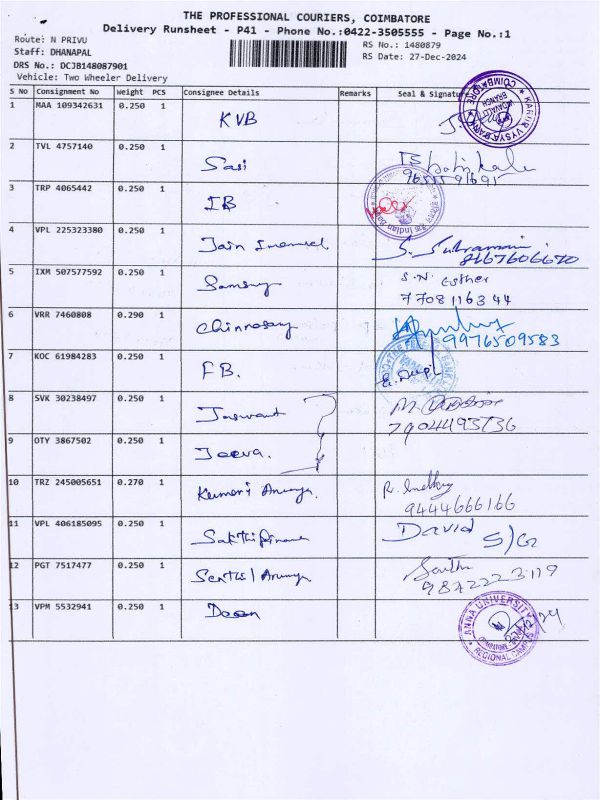 THE PROFESSIONAL COURIERS, COIMBATORE
Delivery Runsheet - P41 - Phone No.:0422-3505555 - Page No.:1
Route: N PRIVU RS No.: 1480879
Staff: DHANAPAL RS Date: 27-Dec-2024
DRS No.: DCJB148087901
Vehicle: Two Wheeler Delivery
S No Consignment No Weight PCS Consignee Details Remarks Seal & Signature
1 MAA 109342631 0.250 1 KVB
2 TVL 4757140 0.250 1 Sasi
3 TRP 4065442 0.250 1 IB
4 VPL 225323380 0.250 1 Jain S. Subramani
8167606670
5 IXM 507577592 0.250 1 Samsung S.N. Esther
7708116344
6 VRR 7460808 0.290 1 Chinnasamy
9976509583
7 KOC 61984283 0.250 1 FB.
8 SVK 30238497 0.250 1 Jaswant
7904493736
9 OTY 3867502 0.250 1 Jeeva.
10 TRZ 245005651 0.270 1 Kumar's
9444666166
11 VPL 406185095 0.250 1 David S/G
12 PGT 7517477 0.250 1 Senthil
9872223119
13 VPM 5532941 0.250 1 Dean
ANNA UNIVERSITY
REGIONAL CAMPUS